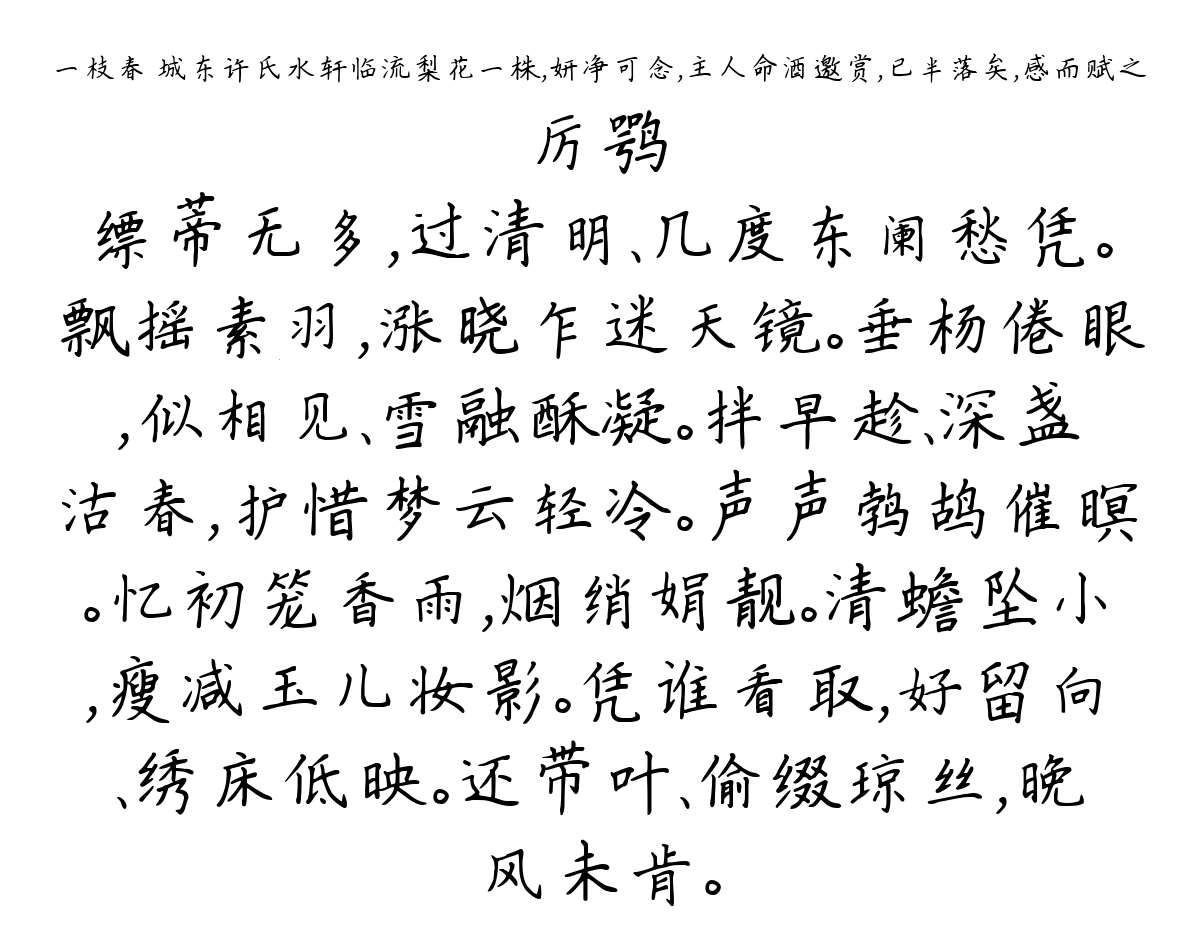 一枝春 城东许氏水轩临流梨花一株,妍净可念,主人命酒邀赏,已半落矣,感而赋之
厉鹗
缥蒂无多,过清明、几度东阑愁凭。
飘摇素羽,涨晓乍迷天镜。垂杨倦眼
,似相见、雪融酥凝。拌早趁、深盏
沽春,护惜梦云轻冷。声声鹁鸪催暝
。忆初笼香雨,烟绡娟靓。清蟾坠小
,瘦减玉儿妆影。凭谁看取,好留向
、绣床低映。还带叶、偷缀琼丝,晚
风未肯。